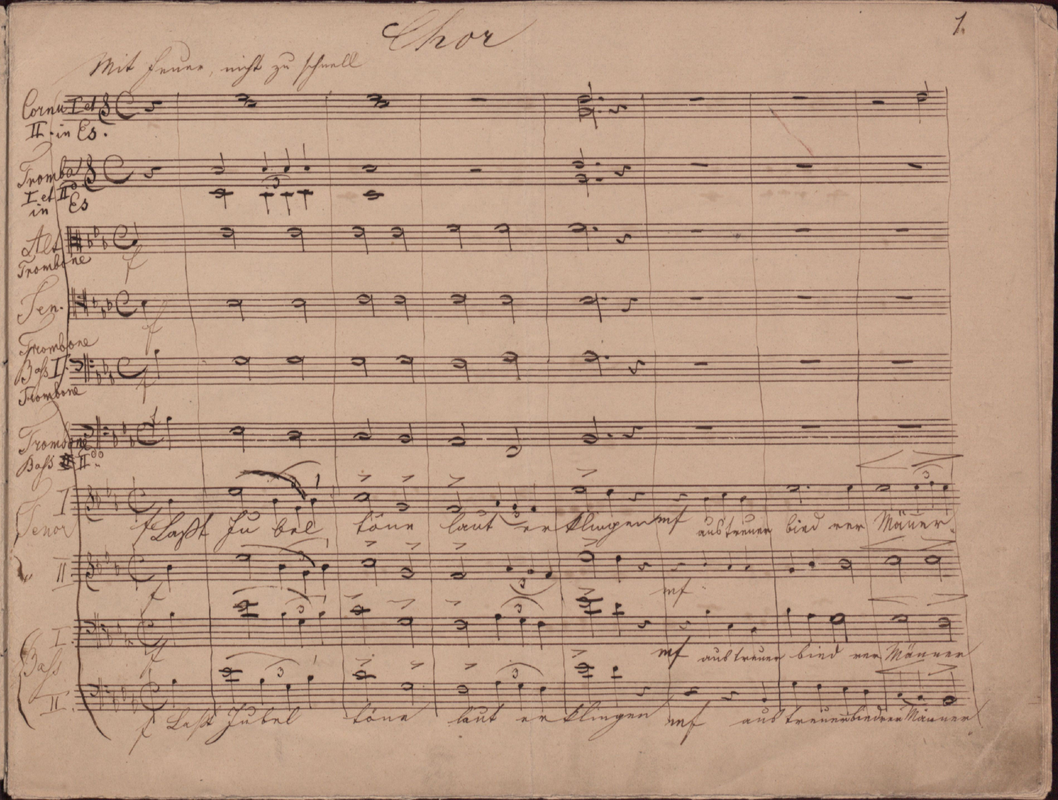 Chor
1.
Mit Feuer, nicht zu schnell
Cornu I et
II. in Es.
Tromba
I et II
in Es
Alt
Trombone
f
Ten.
Trombone
f
Bass I
Trombone
f
Trombone
Bass II.
f
I
Tenor
f Laßt Ju bel töne laut er klingen mf aus treuer bied rer Männer
II
f mf
I.
Bass
f mf aus treuer bied rer Männer
II
f Laßt Jubel töne laut er klingen mf aus treuer biedrer Männer